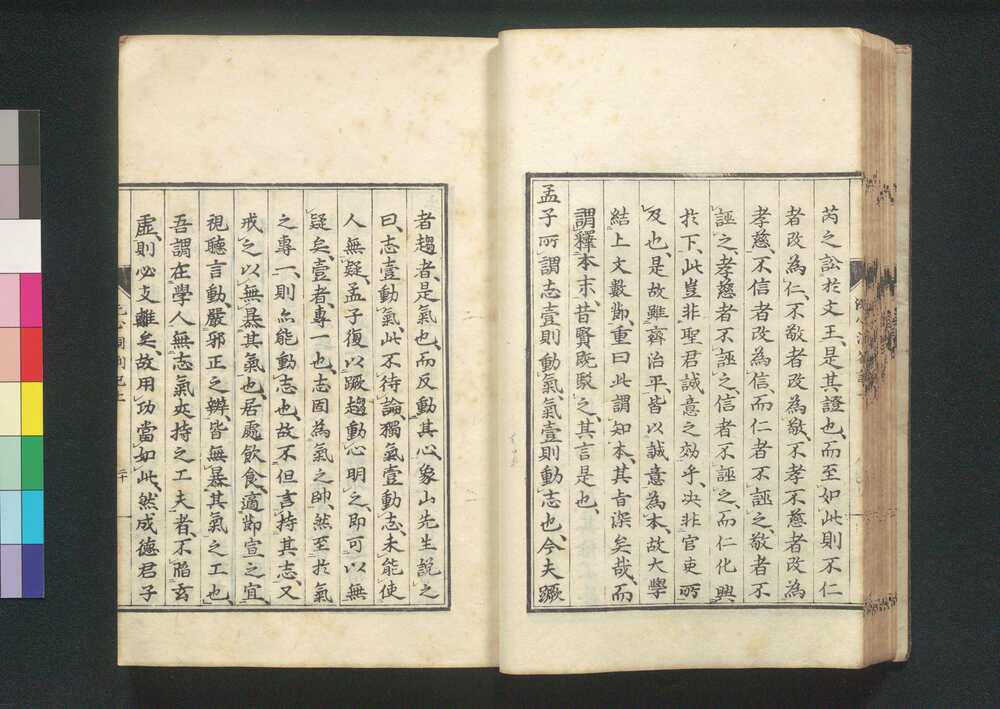 芮之訟於文王、是其證也、而至如此則不仁
者改為仁、不敬者改為敬、不孝不慈者改為
孝慈、不信者改為信、而仁者不誣之、敬者不
誣之、孝慈者不誣之、信者不誣之、而仁化興
於下、此豈非聖君誠意之効乎、決非官吏所
及也、是故雖齊治平、皆以誠意為本、故大學
結上文數節、重曰此謂知本、其旨深矣哉、而
謂釋本末、昔賢既駁之、其言是也、
孟子所謂志壹則動氣、氣壹則動志也、今夫蹶
者趨者、是氣也、而反動其心、象山先生說之
曰、志壹動氣、此不待論、獨氣壹動志、未能使
人無疑、孟子復以蹶趨動心明之、即可以無
疑矣、壹者、專一也、志固為氣之帥、然至於氣
之專一、則亦能動志也、故不但言持其志、又
戒之以無暴其氣也、居處飲食、適節宣之宜、
視聽言動、嚴邪正之辨、皆無暴其氣之工也、
吾謂在學人無志氣夾持之工夫者、不陷玄
虛、則必支離矣、故用功當如此、然成德君子